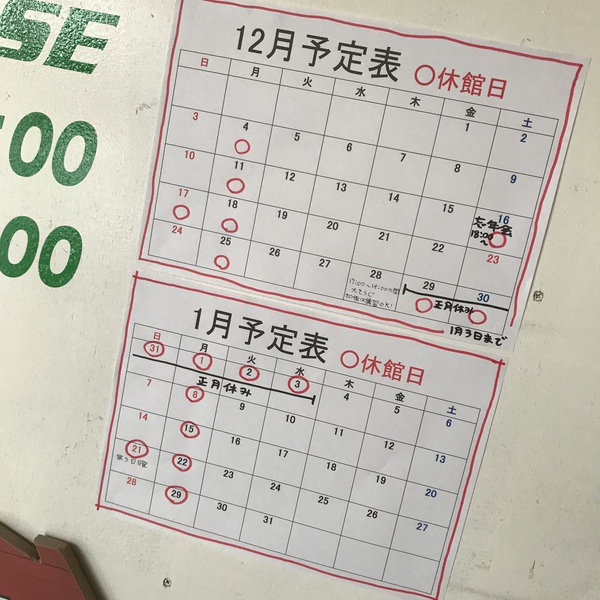 SE
:00
00
12月予定表 〇休館日
日 月 火 水 木 金 土
1 2
3 4 5 6 7 8 9
10 11 12 13 14 15 16
忘年会
18:00〜
17 18 19 20 21 22 23
24 25 26 27 28 29 30
正月休み
1月3日まで
1月予定表 〇休館日
日 月 火 水 木 金 土
31 1 2 3 4 5 6
正月休み
7 8 9 10 11 12 13
14 15 16 17 18 19 20
21 22 23 24 25 26 27
第3日曜
28 29 30 31